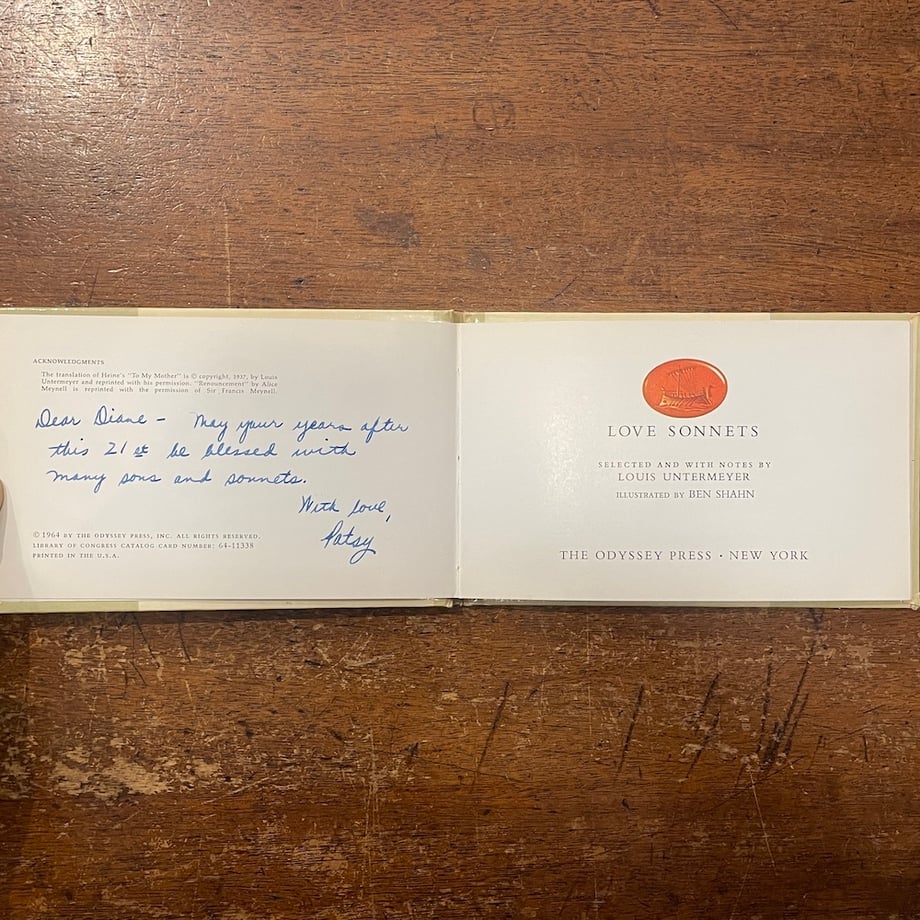 ACKNOWLEDGMENTS
The translation of Heine's "To My Mother" is © copyright, 1937, by Louis
Untermeyer and reprinted with his permission. "Renouncement" by Alice
Meynell is reprinted with the permission of Sir Francis Meynell.
Dear Diane – May your years after
this 21st be blessed with
many sons and sonnets.
With love,
Patsy
© 1964 BY THE ODYSSEY PRESS, INC. ALL RIGHTS RESERVED.
LIBRARY OF CONGRESS CATALOG CARD NUMBER: 64-11338
PRINTED IN THE U.S.A.
LOVE SONNETS
SELECTED AND WITH NOTES BY
LOUIS UNTERMEYER
ILLUSTRATED BY BEN SHAHN
THE ODYSSEY PRESS · NEW YORK